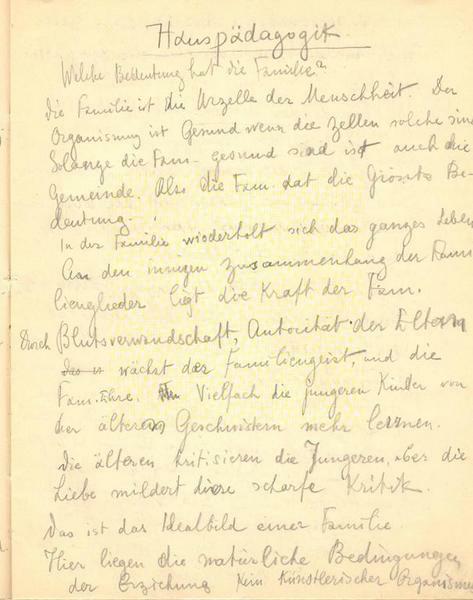 Hauspädagogik.
Welche Bedeutung hat die Familie?
Die Familie ist die Urzelle der Menschheit. Der
Organismus ist Gesund wenn die Zellen solche sind
Solange die Fam- gesund sind ist auch die
Gemeinde. Also die Fam. hat die Grösste Be-
deutung.
In der Familie wiederholt sich das ganzes Leben
An den innigen zusammenhang der Fami
lienglieder ligt die Kraft der Fam.
Durch Blutsverwandschaft, Autorität der Eltern
wächst der Familiengeist, und die
Fam. Ehre. Vielfach die jüngeren Kinder von
der älteren Geschwistern mehr lernen.
Die älteren kritisieren die Jungeren, aber die
Liebe mildert diese scharfe Kritik.
Das ist das Idealbild einer Familie.
Hier liegen die natürliche Bedingungen
der Erziehung Kein Künstlerischer Organismus